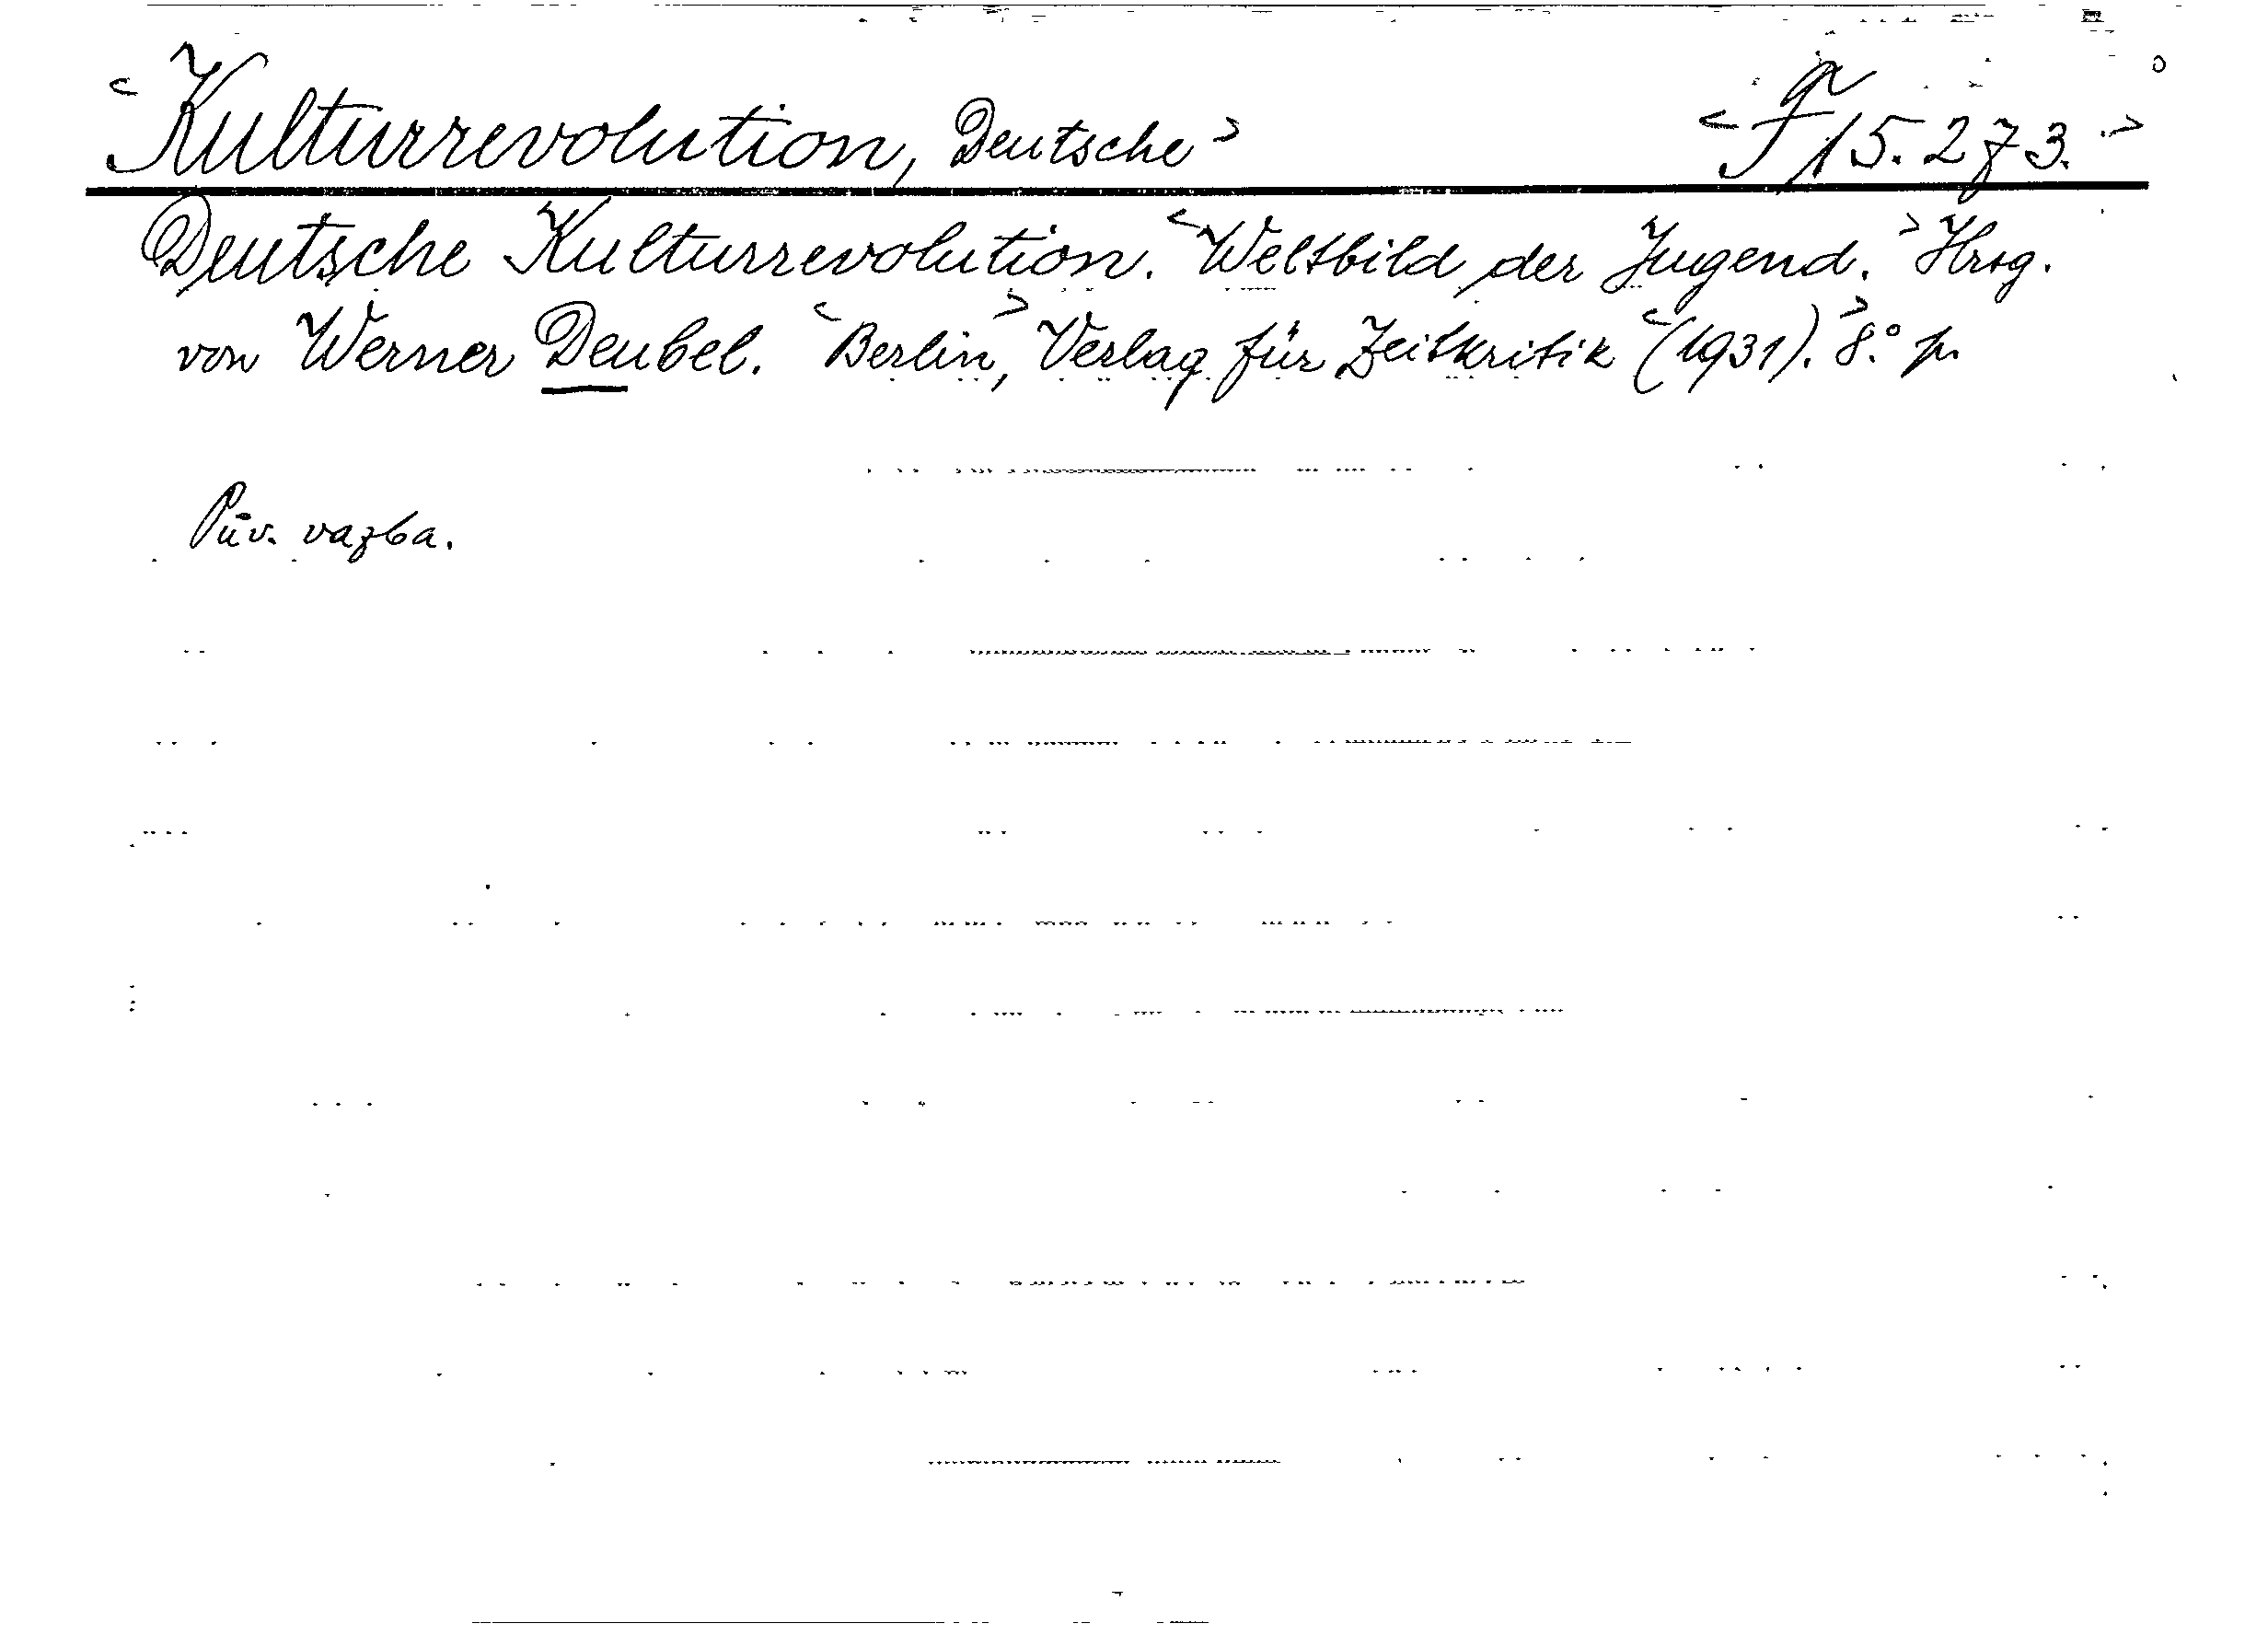 <Kulturrevolution, Deutsche> <F 15.273.>
Deutsche Kulturrevolution. <Weltbild der Jugend.> Hrsg.
von Werner Deubel. <Berlin,> Verlag für Zeitkritik <(1931).> 8.° p.
Pův. vazba.